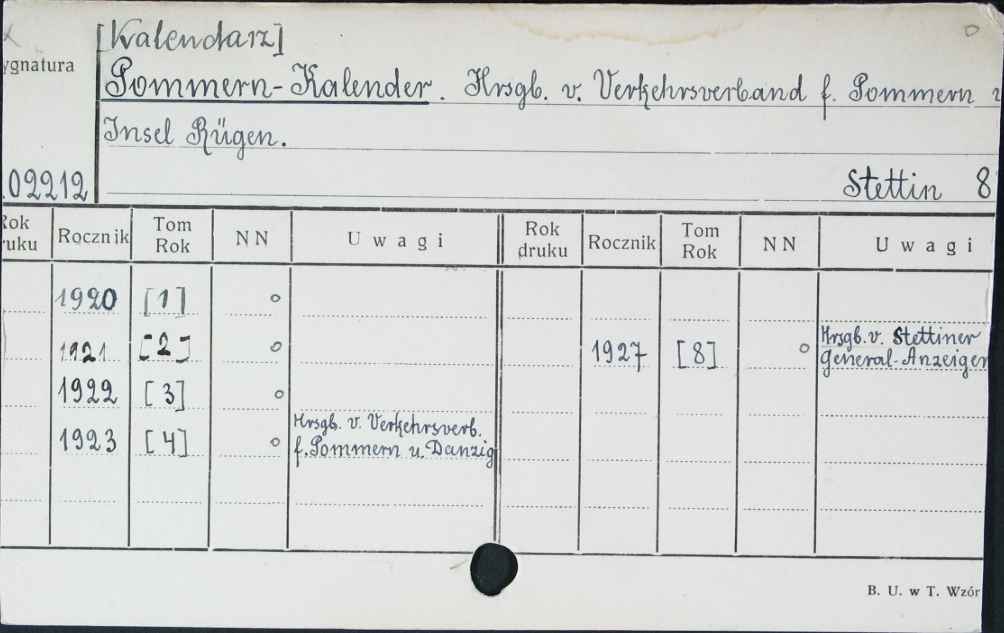 [Kalendarz]
ygnatura
Pommern-Kalender. Hrsgb. v. Verkehrsverband f. Pommern
Insel Rügen.
.02212
Stettin 8
Rok ruku Rocznik Tom Rok NN Uwagi Rok druku Rocznik Tom Rok NN Uwagi
1920 [1] o
1921 [2] o 1927 [8] o Hrsgb. v. Stettiner General-Anzeiger
1922 [3] o
1923 [4] o Hrsgb. v. Verkehrsverb. f. Pommern u. Danzig
B. U. w T. Wzór